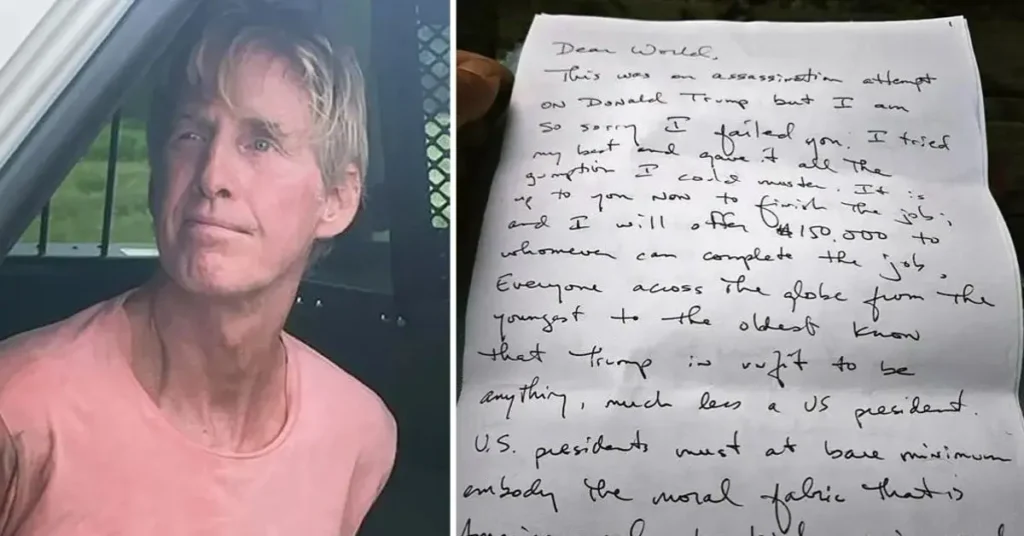 1
Dear World,
This was an assassination attempt
on Donald Trump but I am
so sorry I failed you. I tried
my best and gave it all the
gumption I could muster. It is
up to you now to finish the job;
and I will offer $150,000 to
whomever can complete the job.
Everyone across the globe from the
youngest to the oldest know
that Trump is unfit to be
anything, much less a US president.
U.S. presidents must at bare minimum
embody the moral fabric that is